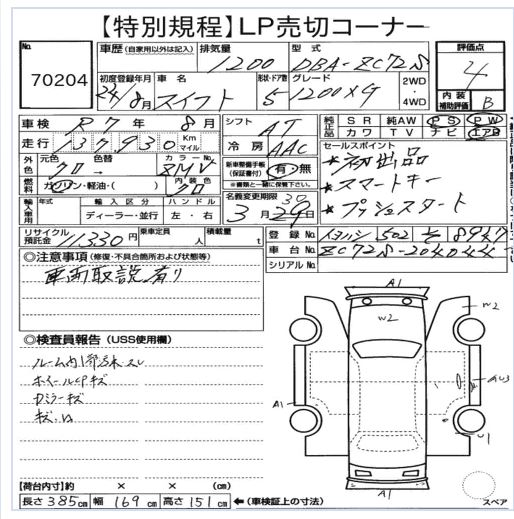 【特別規程】LP売切コーナー
No. 70204
車歴 (自家用以外は記入) 排気量 1200 型式 DBA-ZC72S
評価点 4
初度登録年月 24/8月 車名 スイフト 形状・ドア数 5 グレード 1200XG 2WD ・ 4WD
内装 補助評価 B
車検 R7年 8月 シフト AT
純正品 SR 純AW PS PW
カワ TV ナビ エアB
走行 137,930 Km マイル 冷房 AAC
外色 元色 クロ → 色替 カラーNo. ZMV
セールスポイント
★初出品
★スマートキー
★プッシュスタート
燃料 ガソリン・軽油・( ) 内装色 クロ
新車整備手帳 (保証書付) 有・無
※書類と一緒に保管下さい。
輸入車用 年式 輸入区分 ディーラー・並行 ハンドル 左・右
名義変更期限 3月29日 30
リサイクル預託金 11,330円 乗車定員 人 積載量 t
登録No.
車台No. ZC72S-
シリアルNo.
◎注意事項 (修復・不具合箇所および状態等)
車両取説有り
◎検査員報告 (USS使用欄)
ルーム内
ホイールCPキズ
Dミラーキズ
A1
W2
W2
AU3
A1
U1
A1
スペア
【荷台内寸】約 × × (cm)
長さ 385cm 幅 169cm 高さ 151cm ←(車検証上の寸法)